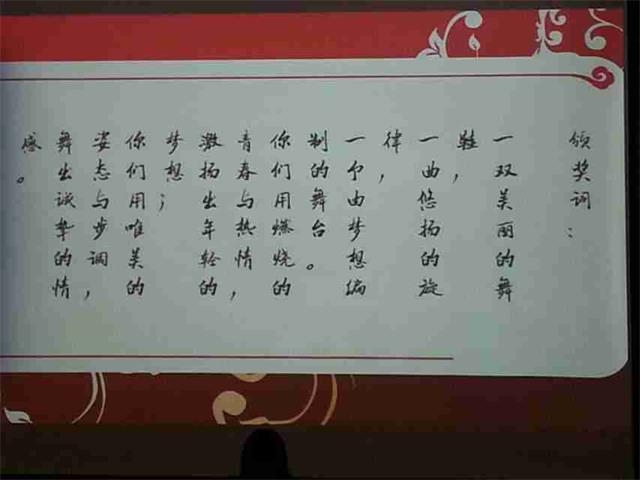 颁奖词：
一双美丽的舞
鞋，
一曲悠扬的旋
律，
一个由梦想编
制的舞台。
你们用燃烧的
青春与热情，
激扬出年轻的
梦想；
你们用唯美的
姿态与步调，
舞出诚挚的情
感。